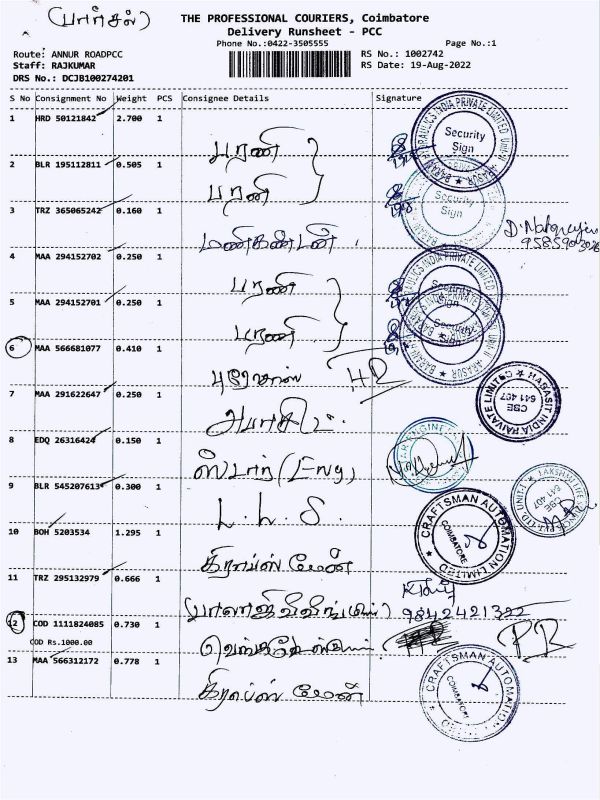 (பார்சல்)
THE PROFESSIONAL COURIERS, Coimbatore
Delivery Runsheet - PCC
Phone No.:0422-3505555 Page No.:1
Route: ANNUR ROADPCC RS No.: 1002742
Staff: RAJKUMAR RS Date: 19-Aug-2022
DRS No.: DCJB100274201
S No Consignment No Weight PCS Consignee Details Signature
1 HRD 50121842 2.700 1 பரணி Security Sign
2 BLR 195112811 0.505 1 பரணி Security Sign
3 TRZ 365065242 0.160 1 மணிகண்டன்
4 MAA 294152702 0.250 1 பரணி Security
5 MAA 294152701 0.250 1 பரணி Security Sign
6 MAA 566681077 0.410 1
7 MAA 291622647 0.250 1 HABASIT INDIA PRIVATE LIMITED CBE 641 407
8 EDQ 26316424 0.150 1 ஸ்டார் (Eng)
9 BLR 545207613 0.300 1 L. L. S. CBE 641 407
10 BOH 5203534 1.295 1 கிராப்ஸ் மேன் CRAFTSMAN AUTOMATION LIMITED COIMBATORE
11 TRZ 295132979 0.666 1 9842421322
12 COD 1111824085 0.730 1 PR
COD Rs.1000.00
13 MAA 566312172 0.778 1 கிராப்ஸ் மேன் CRAFTSMAN AUTOMATION LIMITED COIMBATORE